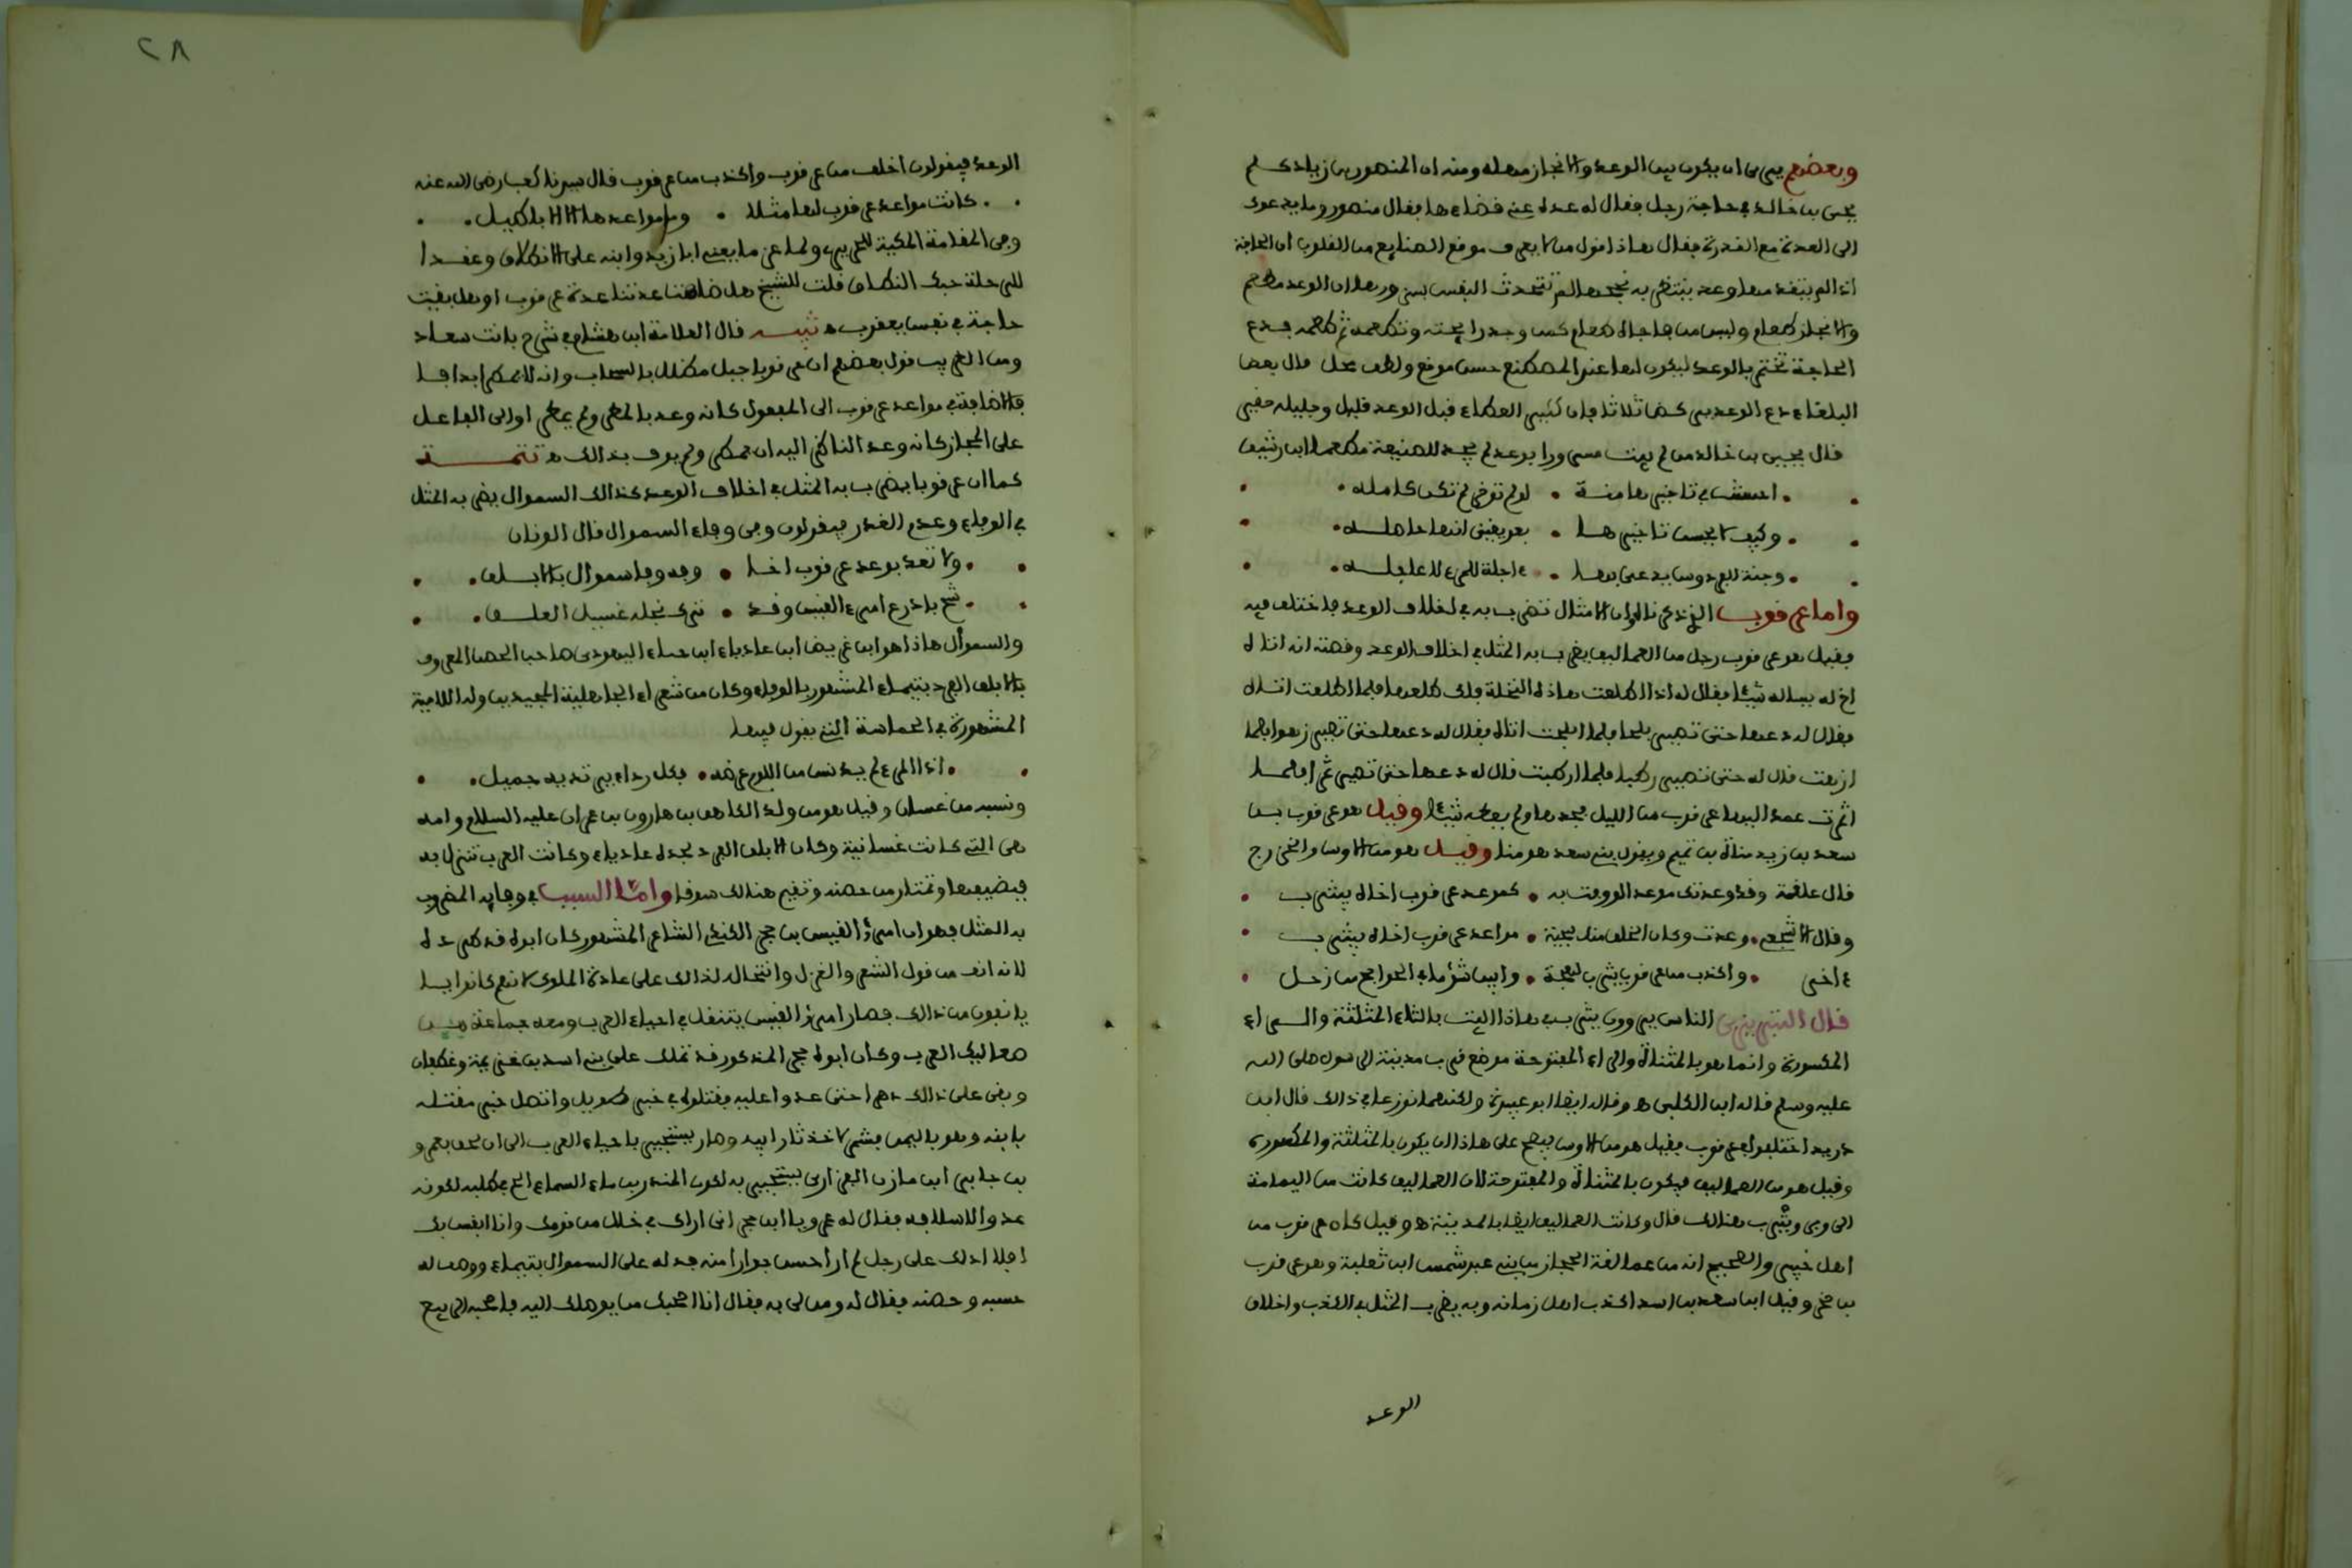 وبعضهم يرى ان يكون بين الوعد والانجاز مهلة ومنه ان المنصور بن زياد كلم
يحيى بن خالد في حاجة رجل فقال له عده عني قضاءها فقال منصور وما يدعوك
الى العدة مع القدرة فقال هاذا قول من لا يعرف موقع الصنايع من القلوب ان الحاجة
اذا لم يتقدمها وعد ينتظر به نجحها لم تتحدث النفس بسرورها ان الوعد مطعم
والانجاز طعام وليس من فاجاه طعام كمن وجد رايحته وتطعمه ثم طعمه فدع
الحاجة تختم بالوعد ليكون لها عند المصطنع حسن موقع ولطف محل قال بعض
البلغاء دع الوعد يبى
قال يحيى بن خالد من لم يبت مسرورا بوعد لم يجد للصنيعة مطعما ابن رشيق
احسنت في تاخيرها منة • لو لم توخر لم تكن كامله
وكيف لا يحسن تاخيرها • بعد يقيني انها حاصله
وجنة الفردوس يدعى بها • ءاجلة للمرء لا عاجله
واما عرقوب الذي الامثال تضرب به في اخلاف الوعد فاختلف فيه
فقيل هو عرقوب رجل من العماليق يضرب به المثل في اخلاف الوعد وقصته انه اتاه
اخ له يساله شيئا فقال له اذا اطلعت هاذه النخلة فلك طلعها فلما اطلعت اتاه
فقال له دعها حتى تصير بلحا فلما ابلحت اتاه فقال له دعها حتى تصير زهوا فلما
ازهت قال له حتى تصير رطبا فلما ارطبت قال له دعها حتى تصير تمرا فلما
اتمرت عمد اليها عرقوب من الليل فجدها ولم يعطه شيئا وقيل هو عرقوب بن
سعد بن زيد مناة بن تميم ويقول بني سعد هو منا وقيل هو من الاوس والخزرج
قال علقمة وقد وعدتك موعد الو وفت به • كموعد عرقوب اخاه بيثرب
وقال الاشجعي • وعدت وكان الخلف منك سجية • مواعد عرقوب اخاه بيثرب
ءاخر • واكذب من عرقوب يثرب لهجة • وابين شؤما في الحوايج من زحل
قال التبريزي الناس يروون يثرب في هاذا البيت بالثاء المثلثة والراء
المكسورة وانما هو بالمثناة والراء المفتوحة موضع قرب مدينة الرسول صلى الله
عليه وسلم قاله ابن الكلبي ه وقاله ايضا ابو عبيدة ولكنهما نوزعا في ذالك قال ابن
دريد اختلفوا في عرقوب فقيل هو من الاوس فيصح على هاذا ان يكون بالمثلثة والمكسورة
وقيل هو من العماليق فيكون بالمثناة والمفتوحة لان العماليق كانت من اليمامة
الى وبر ويترب هنالك قال وكانت العماليق ايضا بالمدينة ه وقيل كان عرقوب من
اهل خيبر والصحيح انه من عمالقة الحجاز من بني عبد شمس ابن ثعلبة وهو عرقوب
بن صخر وقيل ابن سعد بن اسد اكذب اهل زمانه وبه يضرب المثل في الكذب واخلاف
الوعد
٢٨
الوعد فيقولون اخلف من عرقوب واكذب من عرقوب قال سيدنا كعب رضي الله عنه
كانت مواعد عرقوب لها مثلا • وما مواعدها الا الاباطيل
وفي المقامة المكية للحريري ولما عزم ما بعيني ابا زيد وابنه على الانطلاق وعقدا
للرحلة حبك النطاق قلت للشيخ هل ضاهت عدتنا عدة عرقوب او هل بقيت
حاجة في نفس يعقوب ه تنبيه قال العلامة ابن هشام في شرح بانت سعاد
ومن الغريب قول بعضهم ان عرقوبا جبل مكلل بالسحاب وانه لا يمطر ابدا
فالاضافة في مواعد عرقوب الى المفعول كانه وعد بالمطر ولم يمطر او الى الفاعل
على المجاز كانه وعد الناظر اليه ان يمطر ولم يوف بذالك ه تتمة
كما ان عرقوبا يضرب به المثل في اخلاف الوعد كذالك السموال يضرب به المثل
في الوفاء وعدم الغدر فيقولون وفي وفاء السموال قال الوزان
ولا تعد بوعد عرقوب اخا • وفه وفا سموال بالابلق
شح بادرع امرء القيس وقد • ترك نجله غسيل العلق
والسموأل هاذا هو ابن غريض ابن عادياء ابن حياء اليهودي صاحب الحصن المعروف
بالابلق الفرد بتيماء المشهور بالوفاء وكان من شعراء الجاهلية المجيدين وله اللامية
المشهورة في الحماسة التي يقول فيها
اذا المرء لم يدنس من اللؤم عرضه • فكل رداء يرتديه جميل
ونسبه من غسان وقيل هو من ولد الكاهن بن هارون بن عمران عليه السلام وامه
هي التي كانت غسانية وكان الابلق الفرد لجده عادياء وكانت العرب تنزل به
فيضيفها وتمتار من حصنه وتقيم هنالك سوقا واما السبب في وفايه المضروب
به المثل فهو ان امرؤ القيس بن حجر الكندي الشاعر المشهور كان ابوه قد طرده
لانه انف من قول الشعر والغزل وانتحاله لذالك على عادة الملوك لانهم كانوا
يانفون من ذالك فصار امرؤ القيس يتنقل في احياء العرب ومعه جماعة من
صعاليك العرب وكان ابوه حجر المذكور قد تملك على بني اسد بن خزيمة وغطفان
وبقى على ذالك دهرا حتى عدوا عليه فقتلوه في خبر طويل واتصل خبر مقتله
بابنه وهو باليمن فشمر لاخذ ثار ابيه وصار يستجير باحياء العرب الى ان لحق بعمرو
بن جابر ابن مازن الفزاري يستجير به لكون المنذر بن ماء السماء الح في طلبه لكونه
عدوا لاسلافه فقال له عمرو يا ابن حجر اني اراك في خلل من قومك وانا انفس بك
افلا ادلك على رجل لم ار احسن جوارا منه فدله على السموال بتيماء ووصف له
حسبه وحصنه فقال له ومن لي به فقال انا اصحبك من يوصلك اليه فاصحبه الربيع